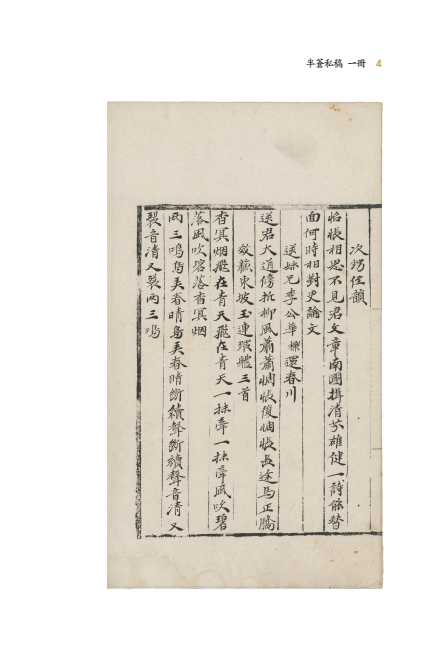 半蒼私稿 一冊 4
次姪韻
悵悵相思不見君文章南國揖清芬雄健一詩能替
面何時相對更論文
送妹兄李公華標還春川
送君大道傍折柳風蕭蕭惆悵復惆悵長途馬正驕
效蘇東坡玉連環體三首
杳冥烟飛在青天飛在青天一抹峯一抹峯風吹碧
落風吹碧落杳冥烟
兩三鳴鳥美春晴鳥美春晴斷續聲斷續聲音清又
裂音清又裂兩三鳴